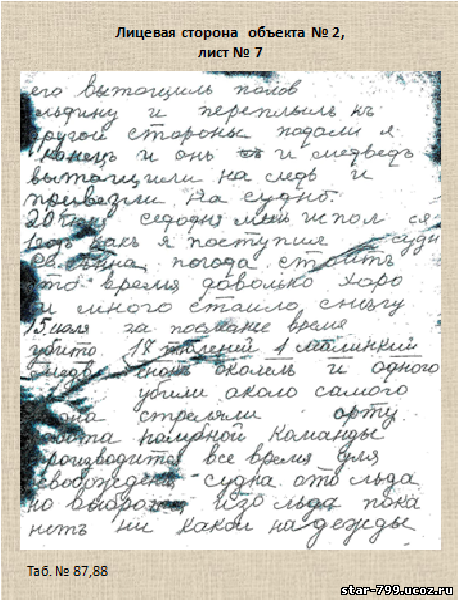 Лицевая сторона объекта № 2,
лист № 7
его вытощиль полов
льдину и переплыль къ
другой стороны подали я
конецъ и онь и медведъ
вытощили на ледъ и
привезли на судно.
20 сегодня мнѣ испол ся
годъ какъ я поступил судн
Св. Анна, погода стоитъ
это время довольно харо
и много стаило снѣгу
15 июля за последнѣ время
убито 18 тюленей 1 малинкий
медв и одного
убили около самого
стреляли
работа палубной команды
производится все время для
освобожден судна ото льда
но выборо изо льда пока
нетъ ни какой надежды
Таб. № 87,88
star-799.ucoz.ru